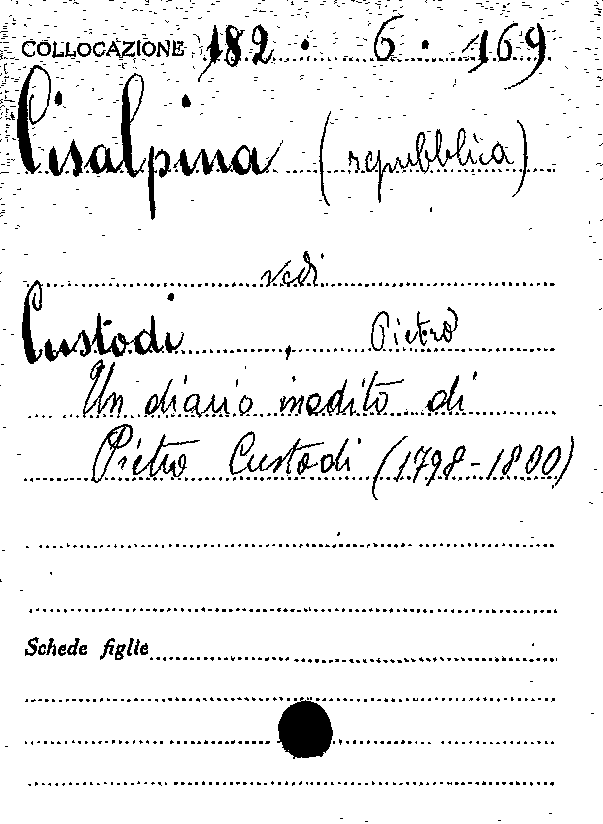 COLLOCAZIONE 182 . 6 . 169
Cisalpina (repubblica)
vedi
Custodi , Pietro
Un diario inedito di
Pietro Custodi (1798-1800)
Schede figlie